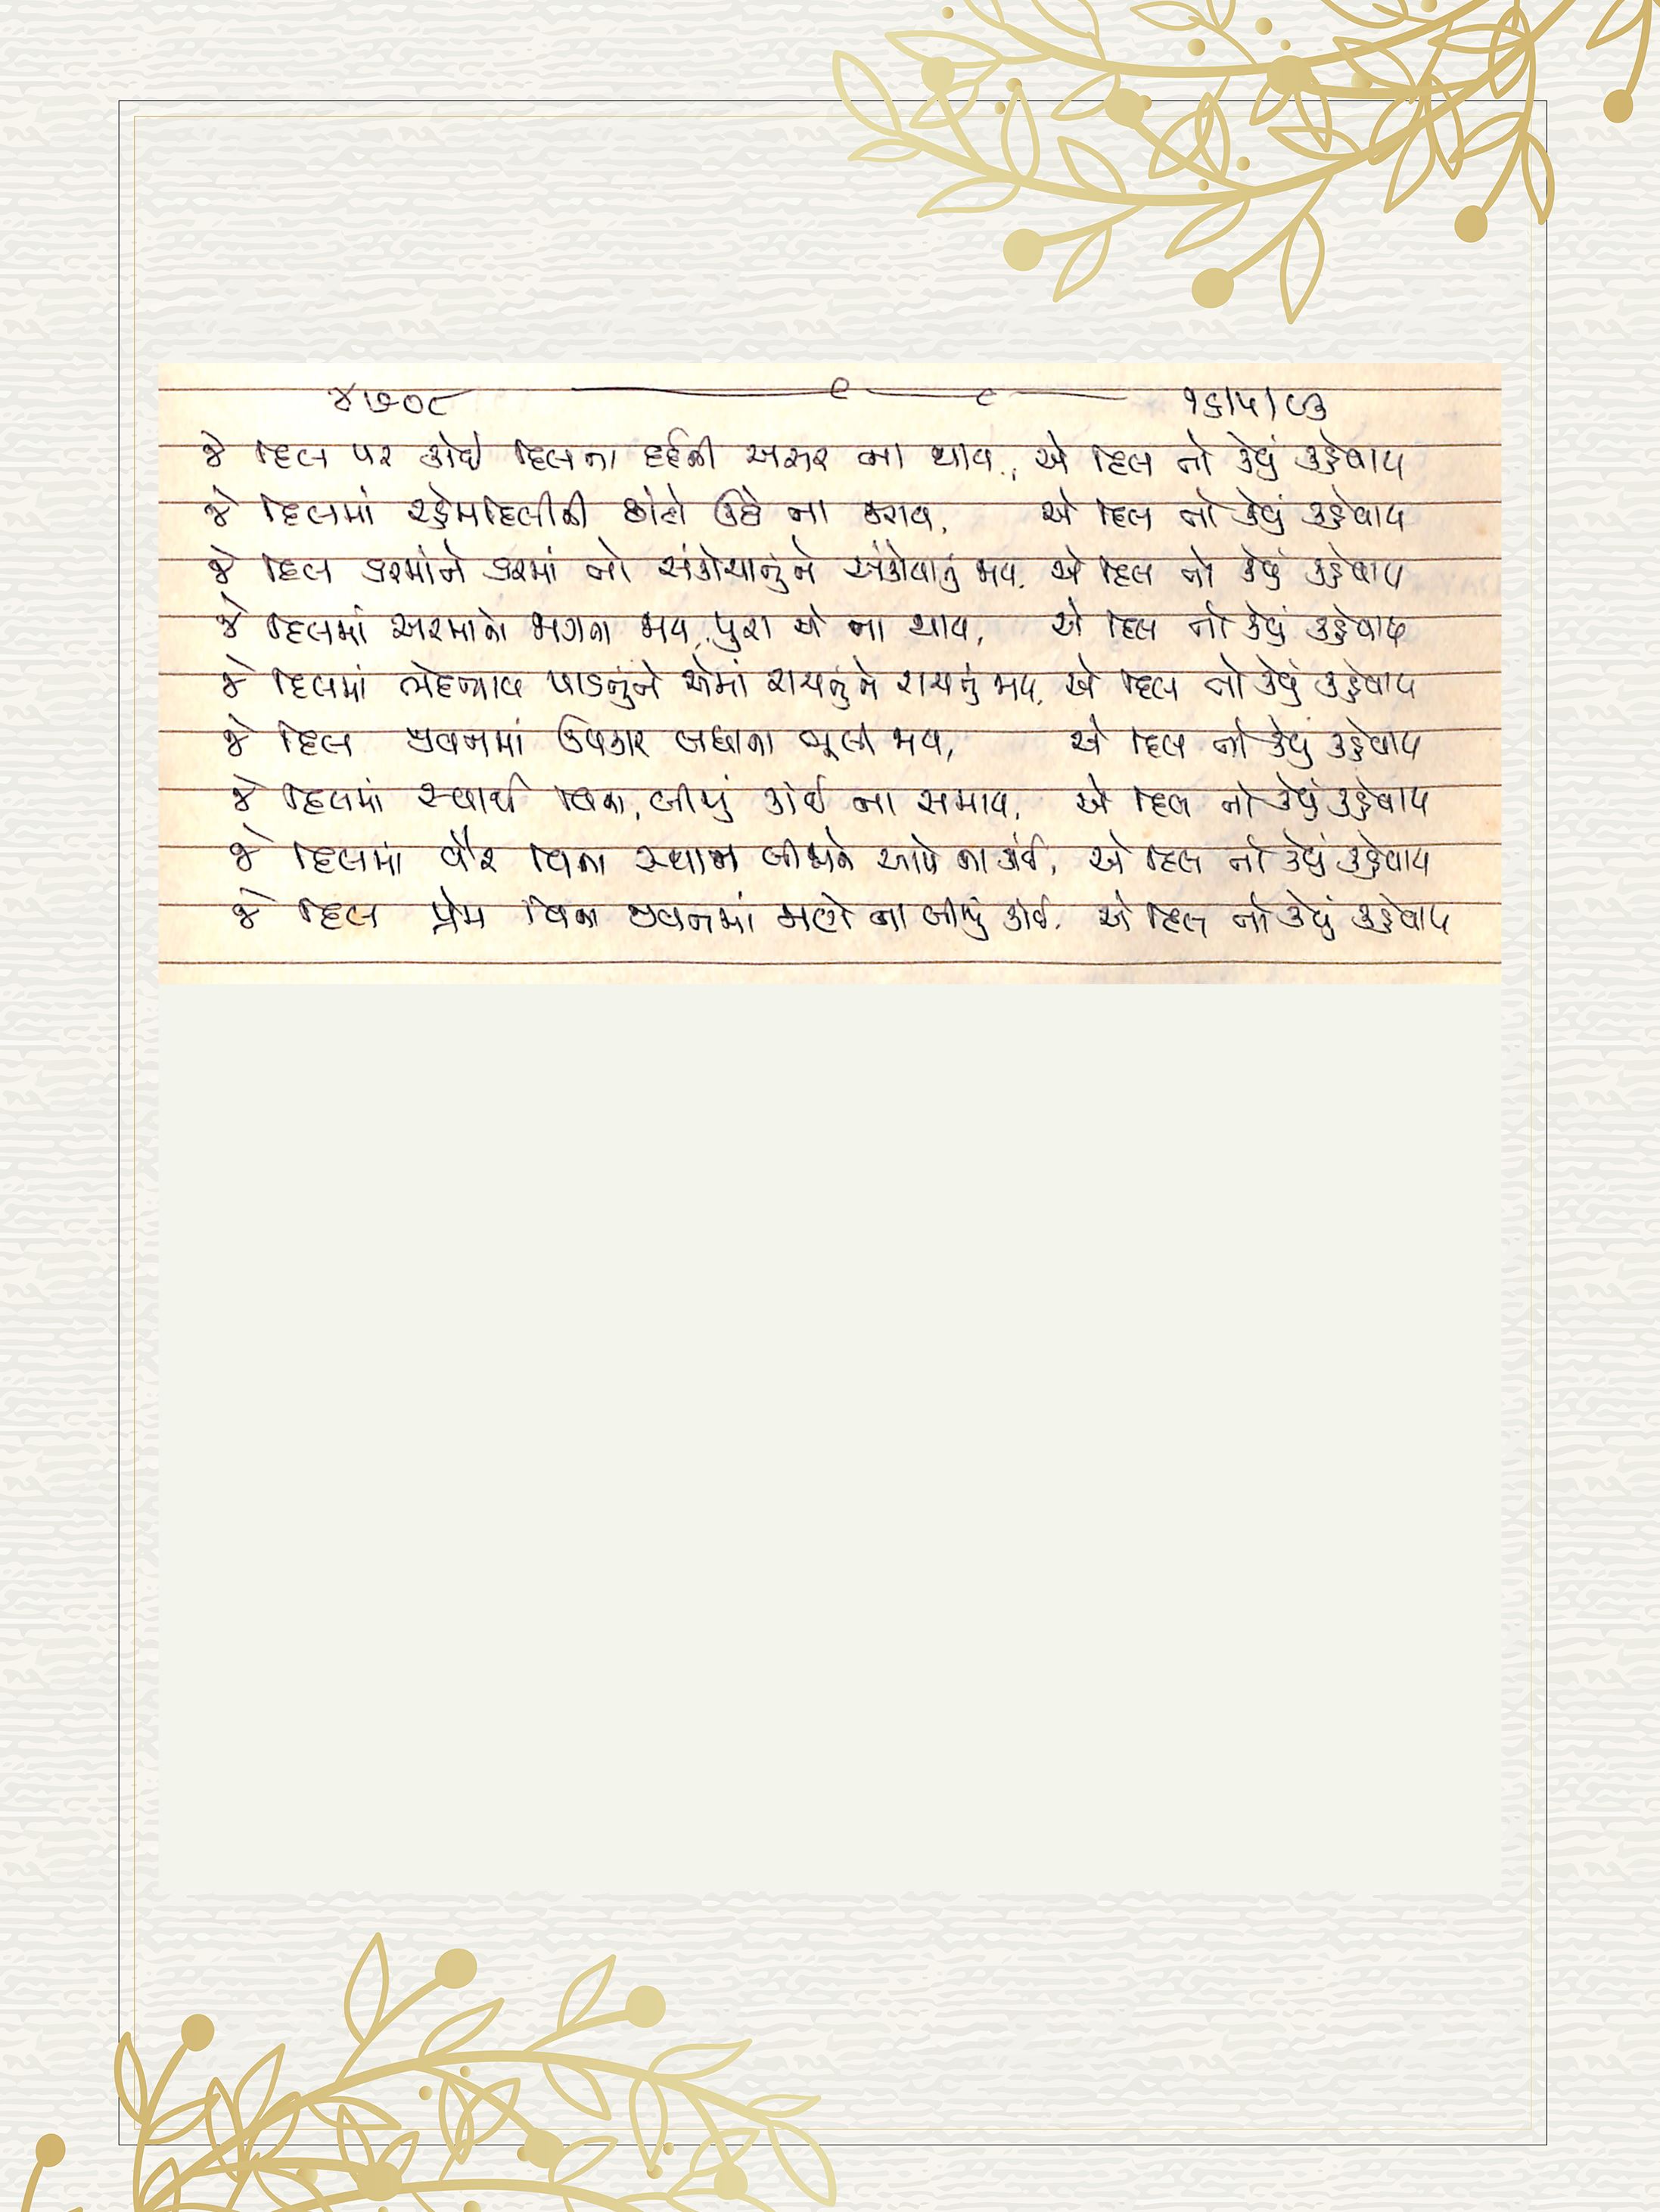 ૪૭૦૮ ૧૬/૫/૯૩
જે દિલ પર કોઈ દિલના દર્દની અસર ના થાય, એ દિલ નો કેવું કહેવાય
જે દિલમાં રહેમદિલીની છાંટો ઊઠે ના જરાય, એ દિલ નો કેવું કહેવાય
જે દિલ કરમાંને કરમાં નો સંકોચાતુંને સંકોચાતું જાય, એ દિલ નો કેવું કહેવાય
જે દિલમાં અરમાનો જાગતા જાય, પુરા એ ના થાય, એ દિલ નો કેવું કહેવાય
જે દિલમાં ભેદભાવ પાડતુંને એમાં રાચતુંને રાચતું જાય, એ દિલ નો કેવું કહેવાય
જે દિલ જીવનમાં ઉપકાર બધાના ભૂલી જાય, એ દિલ નો કેવું કહેવાય
જે દિલમાં સ્વાર્થ વિના, બીજું કાંઈ ના સમાય, એ દિલ નો કેવું કહેવાય
જે દિલમાં વૈર વિના સ્થાન બીજાને આપે ના કાંઈ, એ દિલ નો કેવું કહેવાય
જે દિલ પ્રેમ વિના જીવનમાં માગે ના બીજું કાંઈ, એ દિલ નો કેવું કહેવાય